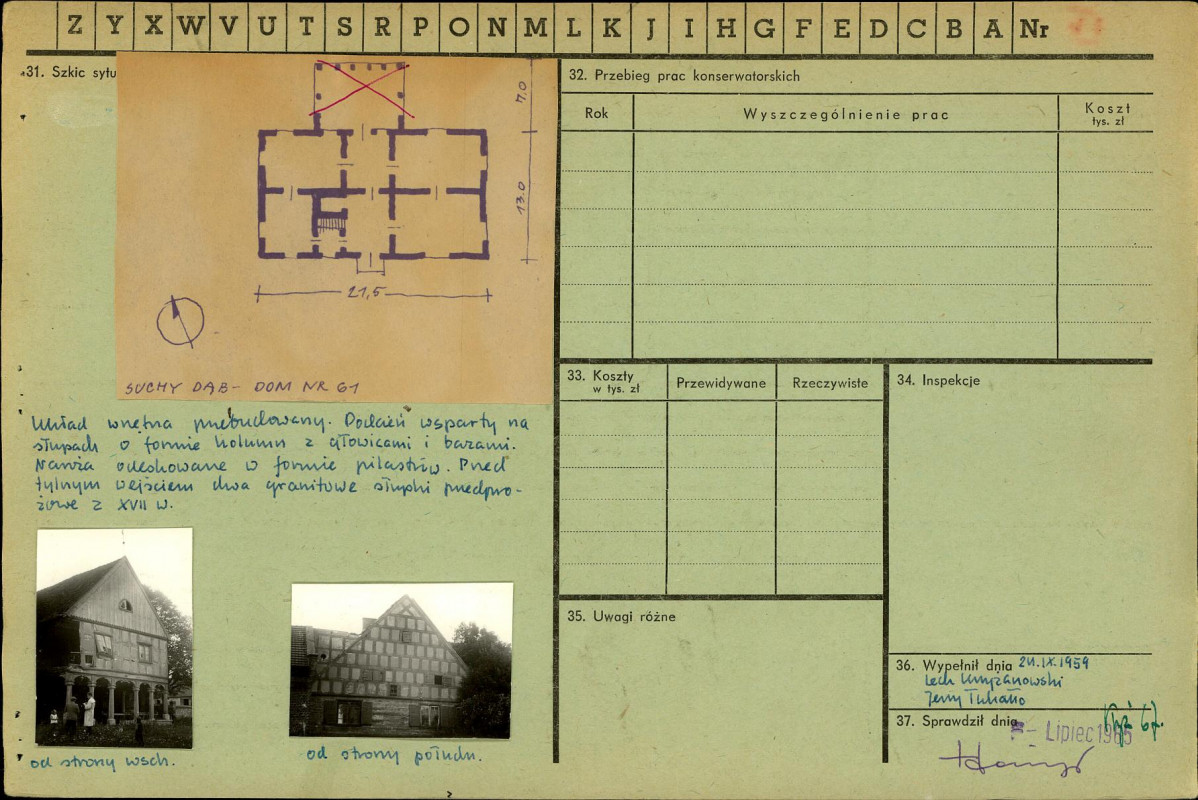 Z Y X W V U T S R P O N M L K J I H G F E D C B A Nr
31. Szkic sytu
7.0
13.0
21,5
SUCHY DĄB - DOM NR 61
Układ wnętrza przebudowany. Podcień wsparty na
słupach o formie kolumn z głowicami i bazami.
Naroża odeskowane w formie pilastrów. Przed
tylnym wejściem dwa granitowe słupki przedpro-
żowe z XVII w.
od strony wsch.
od strony połudn.
32. Przebieg prac konserwatorskich
Rok
Wyszczególnienie prac
Koszt
tys. zł
33. Koszty
w tys. zł
Przewidywane
Rzeczywiste
34. Inspekcje
35. Uwagi różne
36. Wypełnił dnia 24.IX.1959
Lech Krzyżanowski
Jerzy
37. Sprawdził dnia
Lipiec 1965
67.